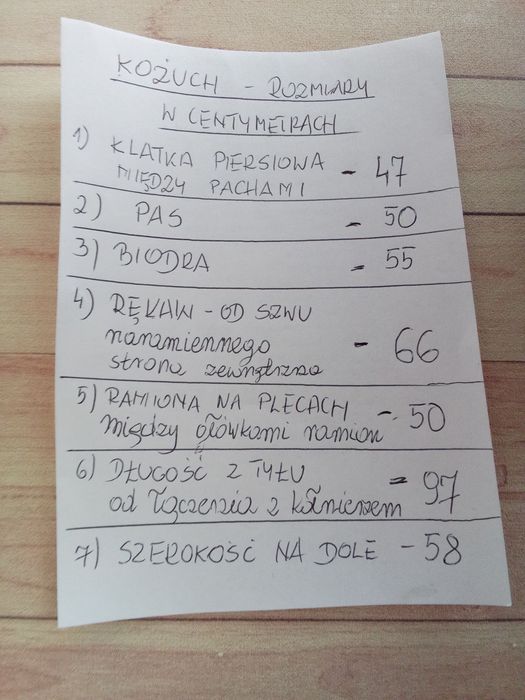 KOŻUCH - ROZMIARY
W CENTYMETRACH
1) KLATKA PIERSIOWA
MIĘDZY PACHAMI - 47
2) PAS - 50
3) BIODRA = 55
4) RĘKAW - OD SZWU
naramiennego - 66
strona zewnętrzna
5) RAMIONA NA PLECACH - 50
między główkami ramion
6) DŁUGOŚĆ Z TYŁU = 97
od łączenia z kołnierzem
7) SZEROKOŚĆ NA DOLE - 58